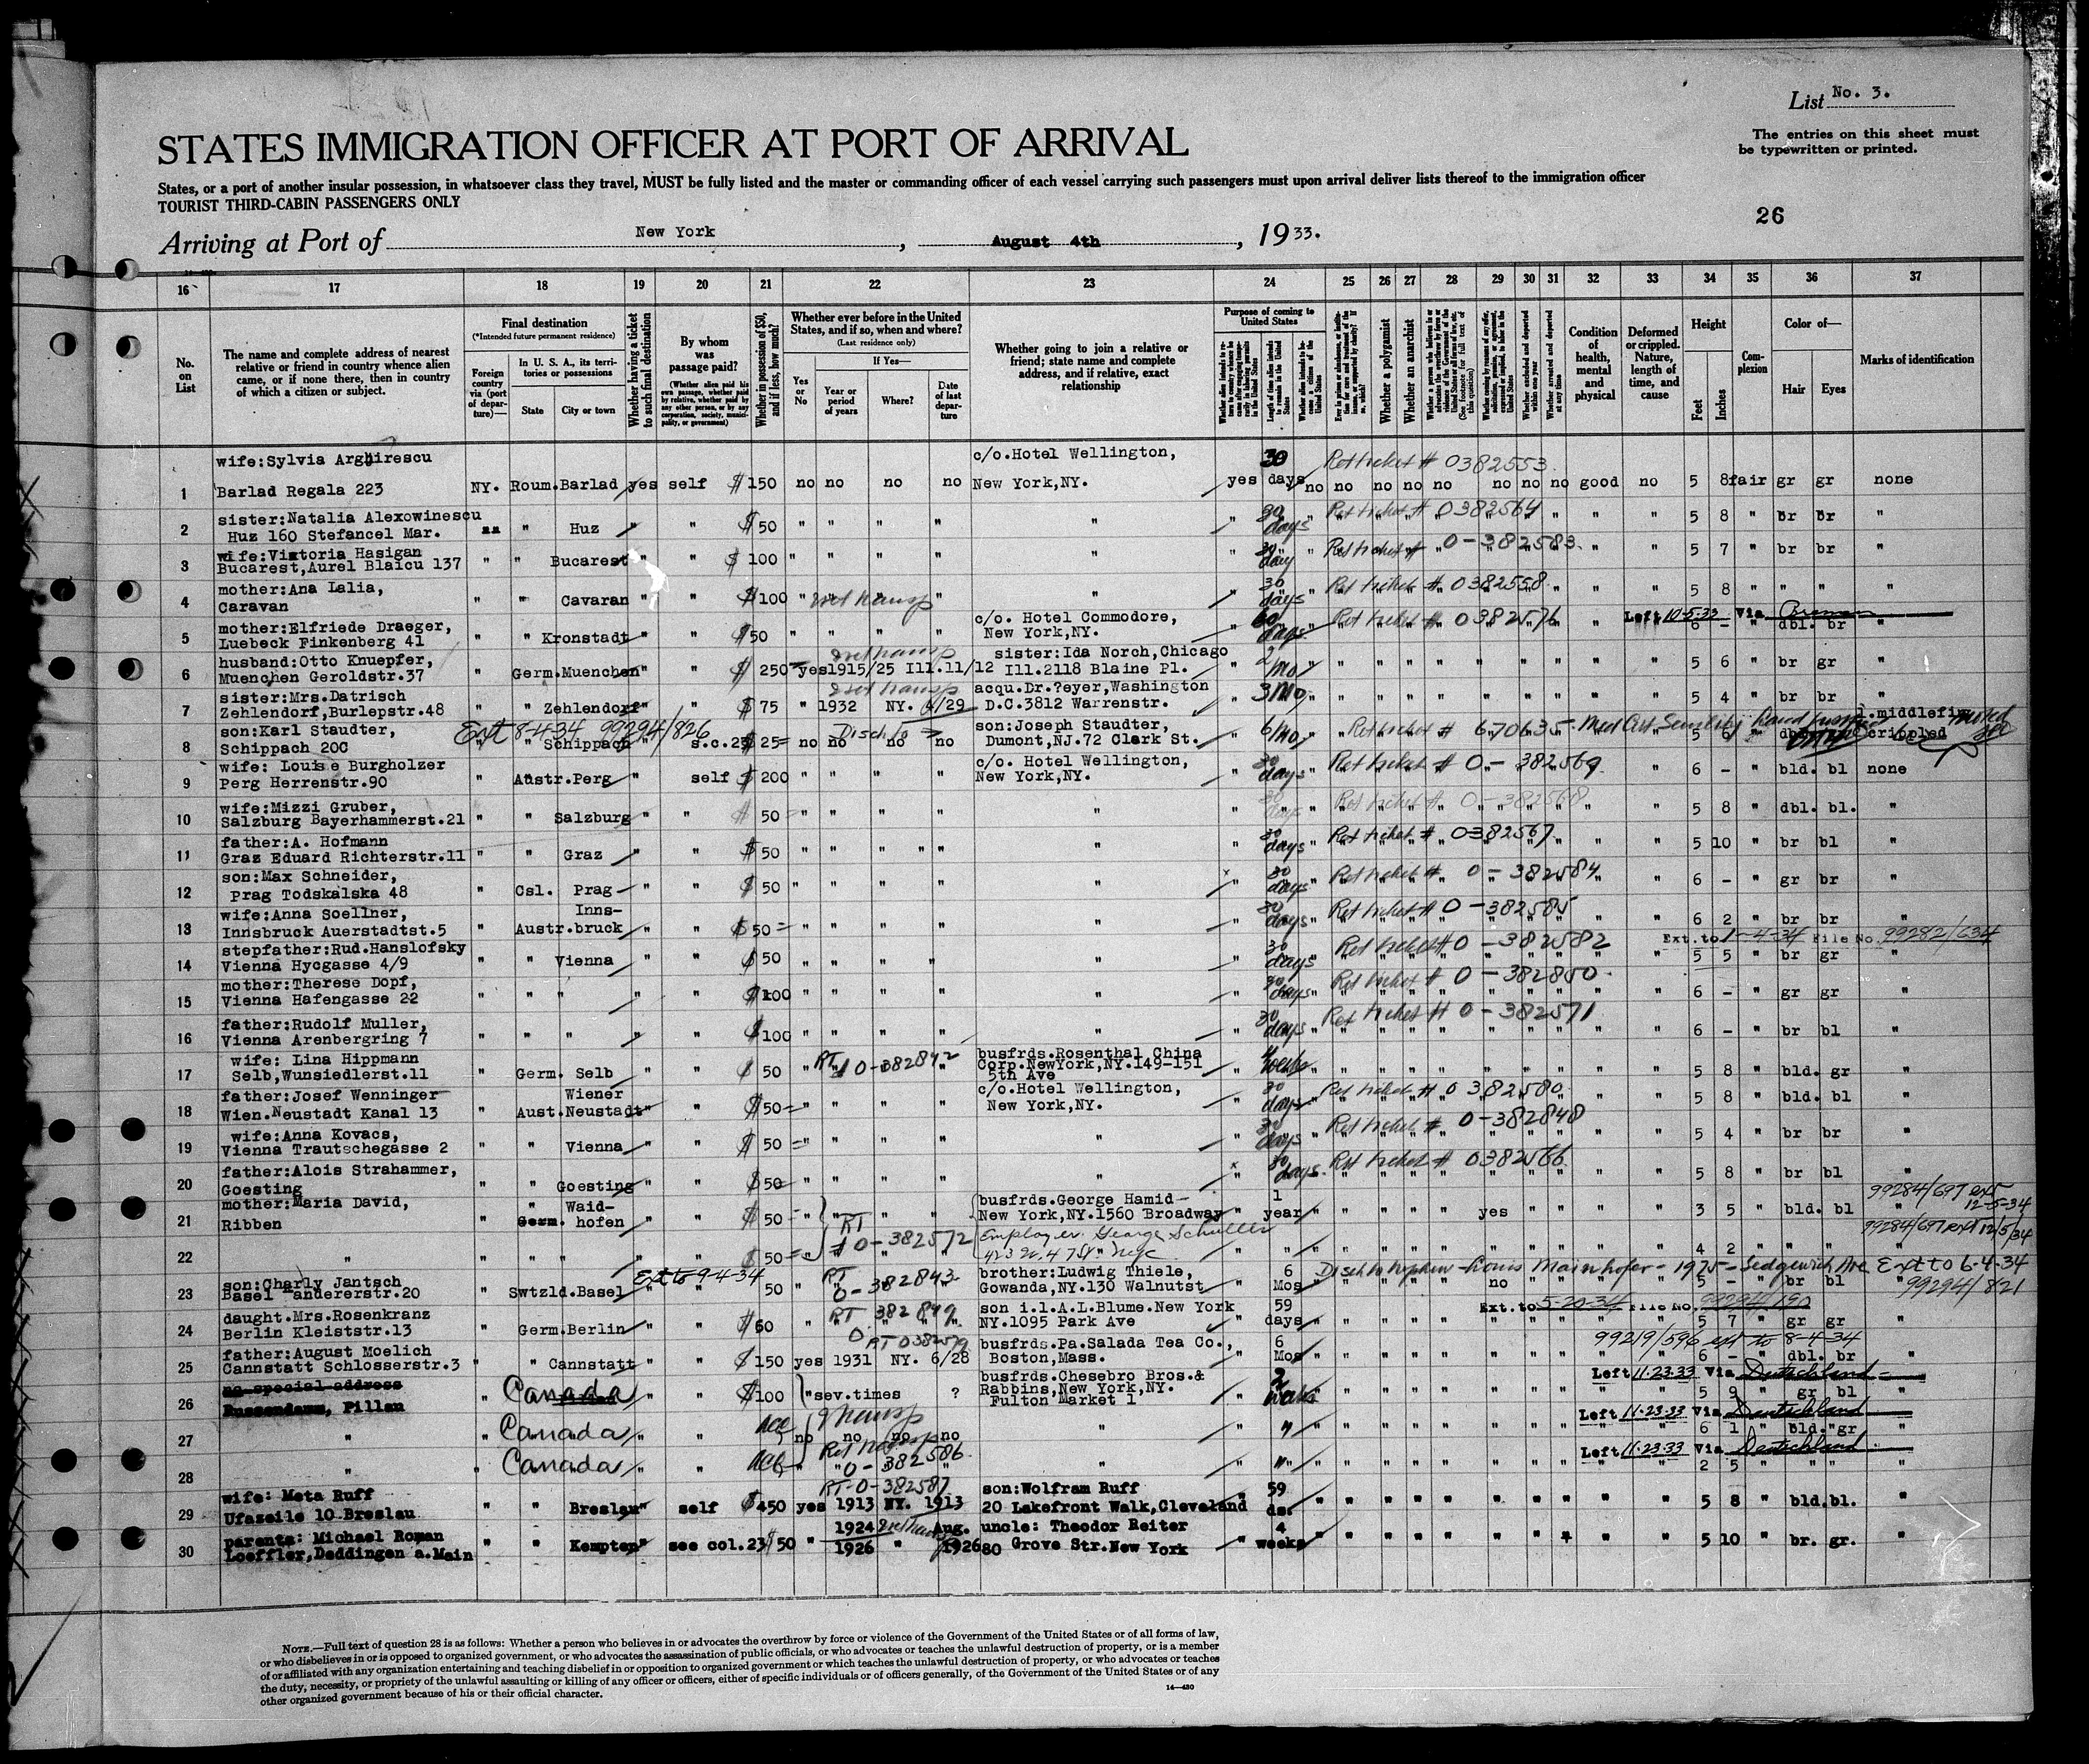 List No. 3.
STATES IMMIGRATION OFFICER AT PORT OF ARRIVAL
The entries on this sheet must
be typewritten or printed.
States, or a port of another insular possession, in whatsoever class they travel, MUST be fully listed and the master or commanding officer of each vessel carrying such passengers must upon arrival deliver lists thereof to the immigration officer
TOURIST THIRD-CABIN PASSENGERS ONLY
26
Arriving at Port of New York, August 4th, 1933.
16 17 18 19 20 21 22 23 24 25 26 27 28 29 30 31 32 33 34 35 36 37
No. on List
The name and complete address of nearest
relative or friend in country whence alien
came, or if none there, then in country
of which a citizen or subject.
Final destination
(*Intended future permanent residence)
Foreign country via (port of departure)—
In U. S. A., its territories or possessions
State
City or town
Whether having a ticket to such final destination
By whom was passage paid?
(Whether alien paid his own passage, whether paid by relative, whether paid by any other person, or by any corporation, society, municipality, or government)
Whether in possession of $50, and if less, how much?
Whether ever before in the United
States, and if so, when and where?
(Last residence only)
Yes or No
If Yes—
Year or period of years
Where?
Date of last departure
Whether going to join a relative or
friend; state name and complete
address, and if relative, exact
relationship
Purpose of coming to United States
Whether a polygamist
Whether an anarchist
Condition of health, mental and physical
Deformed or crippled. Nature, length of time, and cause
Height
Feet
Inches
Complexion
Color of—
Hair
Eyes
Marks of identification
wife:Sylvia Arghirescu c/o.Hotel Wellington, 30 Ret ticket # 0382553
1 Barlad Regala 223 NY. Roum. Barlad yes self $150 no no no no New York,NY. yes days no no no no no no no no good no 5 8 fair gr gr none
sister:Natalia Alexowinescu 30 Ret ticket # 0382564
2 Huz 160 Stefancel Mar. " " Huz " " $50 " " " " " " days 5 8 " br br "
wife:Viktoria Hasigan 30 Ret ticket # 0-382583
3 Bucarest,Aurel Blaicu 137 " " Bucarest " " $100 " " " " " " day 5 7 " br br "
mother:Ana Lalia, 30 Ret ticket # 0382558
4 Caravan " " Cavaran " " $100 " " days 5 8 " " " "
mother:Elfriede Draeger, c/o. Hotel Commodore, 60 Ret ticket # 0382576 Left 10-5-33 Via Bremen
5 Luebeck Finkenberg 41 " " Kronstadt " " $50 " " " " New York,NY. " days 6 - " dbl. br "
husband:Otto Knuepfer, sister:Ida Norch,Chicago 2
6 Muenchen Geroldstr.37 " Germ. Muenchen " " $250 yes 1915/25 Ill. 11/12 Ill.2118 Blaine Pl. " Mo 5 6 " br gr "
sister:Mrs.Datrisch acqu.Dr.?eyer,Washington
7 Zehlendorf,Burlepstr.48 " " Zehlendorf " " $75 " 1932 NY. 4/29 D.C.3812 Warrenstr. " 3 Mo 5 4 " br br "
son:Karl Staudter, Ext 8-4-34 99294/826 son:Joseph Staudter, Ret ticket # 670635
8 Schippach 20C " " Schippach s.c.23 $25 no no no no Dumont,NJ.72 Clark St. " 6 Mo crippled
wife: Louise Burgholzer c/o. Hotel Wellington, 30 Ret ticket # 0-382569
9 Perg Herrenstr.90 " Austr. Perg " self $200 " " " " New York,NY. " days 6 - " bld. bl none
wife:Mizzi Gruber, 30 Ret ticket # 0-382568
10 Salzburg Bayerhammerst.21 " " Salzburg " " $50 " " " " " " days 5 8 " dbl. bl. "
father:A. Hofmann 30 Ret ticket # 0382567
11 Graz Eduard Richterstr.11 " " Graz " " $50 " " " " " " days 5 10 " br bl "
son:Max Schneider, 30 Ret ticket # 0-382584
12 Prag Todskalska 48 " Csl. Prag " " $50 " " " " " " days 6 - " gr br "
wife:Anna Soellner, Inns- 30 Ret ticket # 0-382585
13 Innsbruck Auerstadtst.5 " Austr. bruck " " $50 " " " " " " days 6 2 " br br "
stepfather:Rud.Hanslofsky 30 Ret ticket # 0-382582 Ext. to 1-4-34 File No. 99282/634
14 Vienna Hycgasse 4/9 " " Vienna " " $50 " " " " " " days 5 5 " br gr "
mother:Therese Dopf, 30 Ret ticket # 0-382850
15 Vienna Hafengasse 22 " " " " " $100 " " " " " " days 6 - " gr gr "
father:Rudolf Muller, 30 Ret ticket # 0-382571
16 Vienna Arenbergring 7 " " " " " $100 " " " " " " days 6 - " br bl "
wife: Lina Hippmann RT # 0-382842 busfrds.Rosenthal China
Corp.NewYork,NY.149-151
17 Selb,Wunsiedlerst.11 " Germ. Selb " " $50 5th Ave " weeks 5 8 " bld. gr "
father:Josef Wenninger Wiener c/o.Hotel Wellington, 30 Ret ticket # 0382580
18 Wien.Neustadt Kanal 13 " Aust. Neustadt " " $50 " " " " New York,NY. " days 5 8 " bld. bl "
wife:Anna Kovacs, 30 Ret ticket # 0-382848
19 Vienna Trautschegasse 2 " " Vienna " " $50 " " " " " " days 5 4 " br br "
father:Alois Strahammer, 30 Ret ticket # 0382566
20 Goesting " " Goesting " " $50 " " " " " " days 5 8 " br bl "
mother:Maria David, Waid- busfrds.George Hamid- 1 99284/697 ext 12-5-34
21 Ribben " Germ. hofen " " $50 " " " " New York,NY.1560 Broadway " year yes 3 5 " bld. bl "
RT # 0-382572 Employer George Schuller 99284/697 ext 12/5/34
22 " " " " " " $50 " " 4 2 " " " "
son:Charly Jantsch Ext to 9-4-34 RT 0-382843 brother:Ludwig Thiele, 6 Mainhofer-1975-Sedgewick Ave Ext to 6-4-34
23 Basel andererstr.20 " Swtzld. Basel " " 50 " Gowanda,NY.130 Walnutst " Mos no 5 - " br bl 99294/821
daught.Mrs.Rosenkranz RT 382849 son i.l.A.L.Blume.New York 59 Ext. to 5-20-34 File No. 99294/190
24 Berlin Kleiststr.13 " Germ. Berlin " " $60 NY.1095 Park Ave " days 5 7 " gr gr "
father:August Moelich RT 0382579 busfrds.Pa.Salada Tea Co., 6 99219/596 ext to 8-4-34
25 Cannstatt Schlosserstr.3 " " Cannstatt " " $150 yes 1931 NY. 6/28 Boston,Mass. " Mos 6 - " dbl. br "
no special address busfrds.Chesebro Bros.& 2 Left 11-23-33 Via Deutschland
Rabbins,New York,NY.
26 Pillau Canada " " $100 " sev.times ? Fulton Market 1 5 9 " gr bl "
Left 11-23-33 Via Deutschland
27 " " Canada " " acc no no no no " " " 6 1 " bld. gr
Left 11-23-33 Via Deutschland
28 " " Canada " " acc 0-382586 " " " 2 5 " " " "
wife: Meta Ruff RT-0-382587 son:Wolfram Ruff 59
29 Ufazeile 10 Breslau " " Breslau " self $450 yes 1913 NY. 1913 20 Lakefront Walk,Cleveland ds. 5 8 " bld. bl. "
parents: Michael Roman 1924 Aug. uncle: Theodor Reiter 4
30 Loeffler,Deddingen a.Main " " Kempten " see col.23 $50 " 1926 " 1926 80 Grove Str.New York " weeks 5 10 " br. gr. "
NOTE.—Full text of question 28 is as follows: Whether a person who believes in or advocates the overthrow by force or violence of the Government of the United States or of all forms of law,
or who disbelieves in or is opposed to organized government, or who advocates the assassination of public officials, or who advocates or teaches the unlawful destruction of property, or is a member
of or affiliated with any organization entertaining and teaching disbelief in or opposition to organized government or which teaches the unlawful destruction of property, or who advocates or teaches
the duty, necessity, or propriety of the unlawful assaulting or killing of any officer or officers, either of specific individuals or of officers generally, of the Government of the United States or of any
other organized government because of his or their official character.
14—480